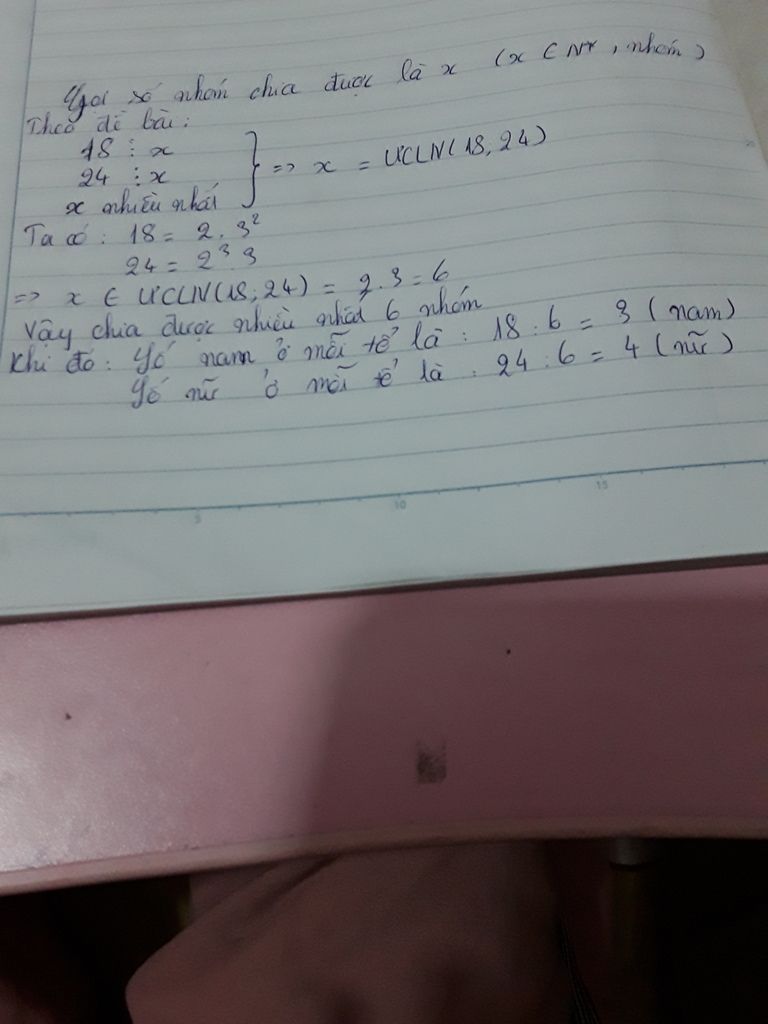 Gọi số nhóm chia được là x (x ∈ N*, nhóm)
Theo đề bài:
18 ⋮ x
24 ⋮ x
x nhiều nhất
} => x = ƯCLN(18, 24)
Ta có: 18 = 2 . 3²
24 = 2³ . 3
=> x ∈ ƯCLN(18; 24) = 2.3 = 6
Vậy chia được nhiều nhất 6 nhóm
Khi đó: Số nam ở mỗi tổ là : 18 : 6 = 3 (nam)
Số nữ ở mỗi tổ là : 24 : 6 = 4 (nữ)
5 10 15